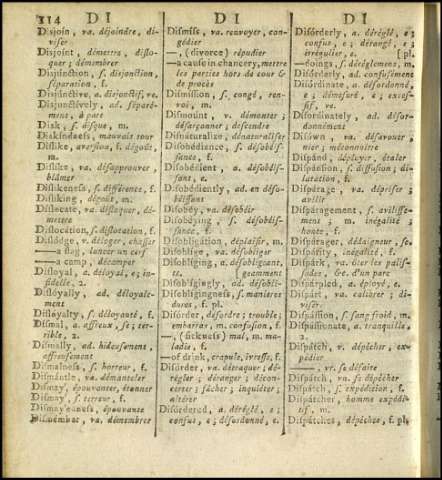 114 D I D I D I
Disjoin, va. déjoindre, di-
viser
Disjoint, démettre, dislo-
quer; démembrer
Disjúnction, s. disjonction,
séparation, f.
Disjúnctive, a. disjonctif, ve.
Disjunctively, ad. séparé-
ment, à part
Disk, s. disque, m.
Diskíndness, mauvais tour
Dislíke, aversion, f. dégoût,
m.
Dislíke, va. désapprouver,
blâmer
Dislíkeness, s. différence, f.
Dislíking, dégoût, m.
Dislocate, va. disloquer, dé-
mettre
Dislocátion, s. dislocation, f.
Dislódge, v. déloger, chasser
—a stag, lancer un cerf
—a camp, décamper
Disloyal, a. déloyal, e; in-
fidelle, 2.
Dislóyally, ad. déloyale-
ment
Disloyalty, s. déloyauté, f.
Dísmal, a. affreux, se; ter-
rible, 2.
Dismally, ad. hideusement,
affreusement
Dismalness, s. horreur, f.
Dismántle, va. démanteler
Dismay, épouvanter, étonner
Dismay, s. terreur, f.
Dismayedness, épouvante
Dismémber, va. démembrer
Dismíss, va. renvoyer, con-
gédier
—, (divorce) répudier
—a cause in chancery, mettre
les parties hors de cour &
de procès
Dismíssion, s. congé, ren-
voi, m.
Dismount, v. démonter;
désarçonner; descendre
Disnáturalize, dénaturaliser
Disobédience, s. désobéis-
sance, f.
Disobédient, a. désobéis-
sant, e.
Disobédiently, ad. en déso-
béissant
Disobéy, va. désobéir
Disobéying, s. désobéis-
sance, f.
Disobligátion, déplaisir, m.
Disoblíge, va. désobliger
Disoblíging, a. désobligeant,
te. [geamment
Disoblígingly, ad. désobli-
Disoblígingness, s. manières
dures, f. pl.
Disórder, désordre; trouble;
embarras, m. confusion, f.
—, (sickness) mal, m. ma-
ladie, f.
—of drink, crapule, ivresse, f.
Disórder, va. détraquer; dé-
régler; déranger; décon-
certer; fâcher; inquiéter;
altérer
Disórdered, a. déréglé, e;
confus, e; désordonné, e.
Disórderly, a. déréglé, e;
confus, e; dérangé, e;
irrégulier, e. [pl.
—doings, s. dérèglemens, m.
Disórderly, ad. confusément
Disórdinate, a. désordonné,
e; démesuré, e; exces-
sif, ve.
Disordinately, ad. désor-
donnément
Disówn, va. désavouer,
nier; méconnoître
Dispánd, déployer, étaler
Dispánsion, s. diffusion, di-
latation, f.
Dispárage, va. dépriser;
avilir
Dispáragement, s. avilisse-
ment; m. inégalité;
honte, f.
Dispárager, dédaigneur, se.
Dispárity, inégalité, f.
Dispárk, va. ôter les palis-
sades, &c. d'un parc
Dispárpled, a. éployé, e.
Dispárt, va. calibrer; di-
viser
Dispássion, s. sang froid, m.
Dispássionate, a. tranquille,
2.
Dispátch, v. dépêcher; ex-
pédier
—, vr. se défaire
Dispátch, vn. se dépêcher
Dispátch, s. expédition, f.
Dispátcher, homme expédi-
tif, m.
Dispátches, dépêches, f. pl.